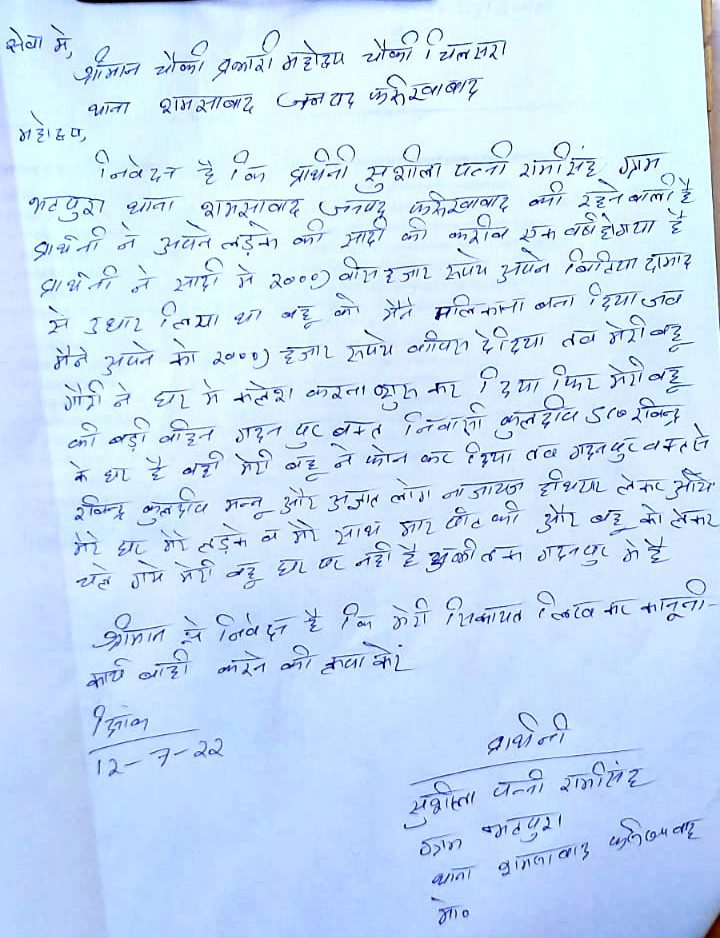 सेवा मे,
श्रीमान चौकी प्रभारी महोदय चौकी चिलसरा
थाना शमसाबाद जनपद फर्रुखाबाद
महोदय,
निवेदन है कि प्रार्थिनी सुशीला पत्नी रामसिंह ग्राम
भटपुरा थाना शमसावाद जनपद फर्रुखावाद की रहने वाली है
प्रार्थिनी ने अपने लड़के की सादी की करीव एक वर्ष होगया है
प्रार्थिनी ने सादी मे २०००) वीस हजार रूपये अपने बिटिया दामाद
से उधार लिया था बहू को मैने मालिकाना बना दिया जव
मैने अपने को २०००) हजार रूपये वापिस दे दिया तव मेरी बहू
गौरी ने घर मे कलेश करना शुरू कर दिया फिर मेरी बहू
की बड़ी बहिन गदनपुर वक्त निवासी कुलदीव S/O रविन्द्र
के घर है वही मेरी बहू ने फोन कर दिया तव गदनपुर वक्त से
रविन्द्र कुलदीव मन्नू और अज्ञात लोग नाजायज हथियार लेकर आये
मेरे घर मेरे लड़के व मेरे साथ मार पीट की और बहू को लेकर
चले गये मेरी बहू घर पर नही है अभी तक गदनपुर मे है
श्रीमान से निवेदन है कि मेरी शिकायत लिख कर कानूनी-
कार्य वाही करने की कृपा करें
दिनांक
12-7-22
प्रार्थिनी
सुशीला पत्नी रामसिंह
ग्राम भटपुरा
थाना शमसावाद
मो०